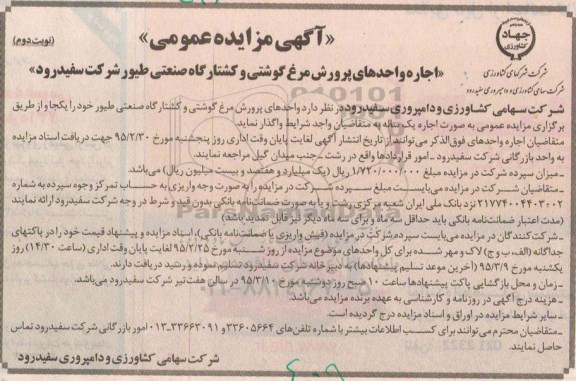 «آگهی مزایده عمومی»
(نوبت دوم)
جهاد کشاورزی
شرکت شهرکهای کشاورزی
شرکت سهامی کشاورزی و دامپروری سفیدرود
«اجاره واحدهای پرورش مرغ گوشتی و کشتارگاه صنعتی طیور شرکت سفیدرود»
شرکت سهامی کشاورزی و دامپروری سفیدرود در نظر دارد واحدهای پرورش مرغ گوشتی و کشتارگاه صنعتی طیور خود را یکجا و از طریق
برگزاری مزایده عمومی به صورت اجاره یکساله به متقاضیان واجد شرایط واگذار نماید.
متقاضیان اجاره واحدهای فوق‌الذکر می‌توانند از تاریخ انتشار آگهی لغایت پایان وقت اداری روز پنجشنبه مورخ ۹۵/۲/۳۰ جهت دریافت اسناد مزایده
به واحد بازرگانی شرکت سفیدرود - امور قراردادها واقع در رشت - جنب میدان گیل مراجعه نمایند.
- میزان سپرده شرکت در مزایده مبلغ ۱/۷۲۰/۰۰۰/۰۰۰ ریال (یک میلیارد و هفتصد و بیست میلیون ریال) می‌باشد.
- متقاضیان شرکت در مزایده می‌بایست مبلغ سپرده شرکت در مزایده را به صورت وجه واریزی به حساب تمرکز وجوه سپرده به شماره
۲۱۷۷۴۰۰۴۴۰۳۰۰۲ نزد بانک ملی ایران شعبه مرکزی رشت و یا به صورت ضمانت‌نامه بانکی بدون قید و شرط در وجه شرکت سفیدرود ارائه نمایند
(مدت اعتبار ضمانت‌نامه بانکی باید حداقل سه ماه و برای سه ماه دیگر نیز قابل تمدید باشد)
- شرکت‌کنندگان در مزایده می‌بایست سپرده شرکت در مزایده (فیش واریزی یا ضمانت‌نامه بانکی)، اسناد مزایده و پیشنهاد قیمت خود را در پاکتهای
جداگانه (الف، ب و ج) لاک و مهر شده برای کل واحدهای موضوع مزایده از روز شنبه مورخ ۹۵/۲/۲۵ لغایت پایان وقت اداری (ساعت ۱۴/۳۰) روز
یکشنبه مورخ ۹۵/۳/۹ (آخرین موعد تسلیم پیشنهادها) به دبیرخانه شرکت سفیدرود تسلیم نموده و رسید دریافت دارند.
- زمان و محل بازگشایی پاکت پیشنهادها ساعت ۱۰ صبح روز دوشنبه مورخ ۹۵/۳/۱۰ در سالن هفت‌تیر شرکت سفیدرود می‌باشد.
- هزینه درج آگهی در روزنامه و کارشناسی به عهده برنده مزایده می‌باشد.
- سایر شرایط مزایده در اوراق و اسناد مزایده درج گردیده است.
- متقاضیان محترم می‌توانند برای کسب اطلاعات بیشتر با شماره تلفن‌های ۳۳۶۰۵۶۶۴ و ۳۳۶۶۳۰۹۱-۰۱۳ امور بازرگانی شرکت سفیدرود تماس
حاصل نمایند.
شرکت سهامی کشاورزی و دامپروری سفیدرود